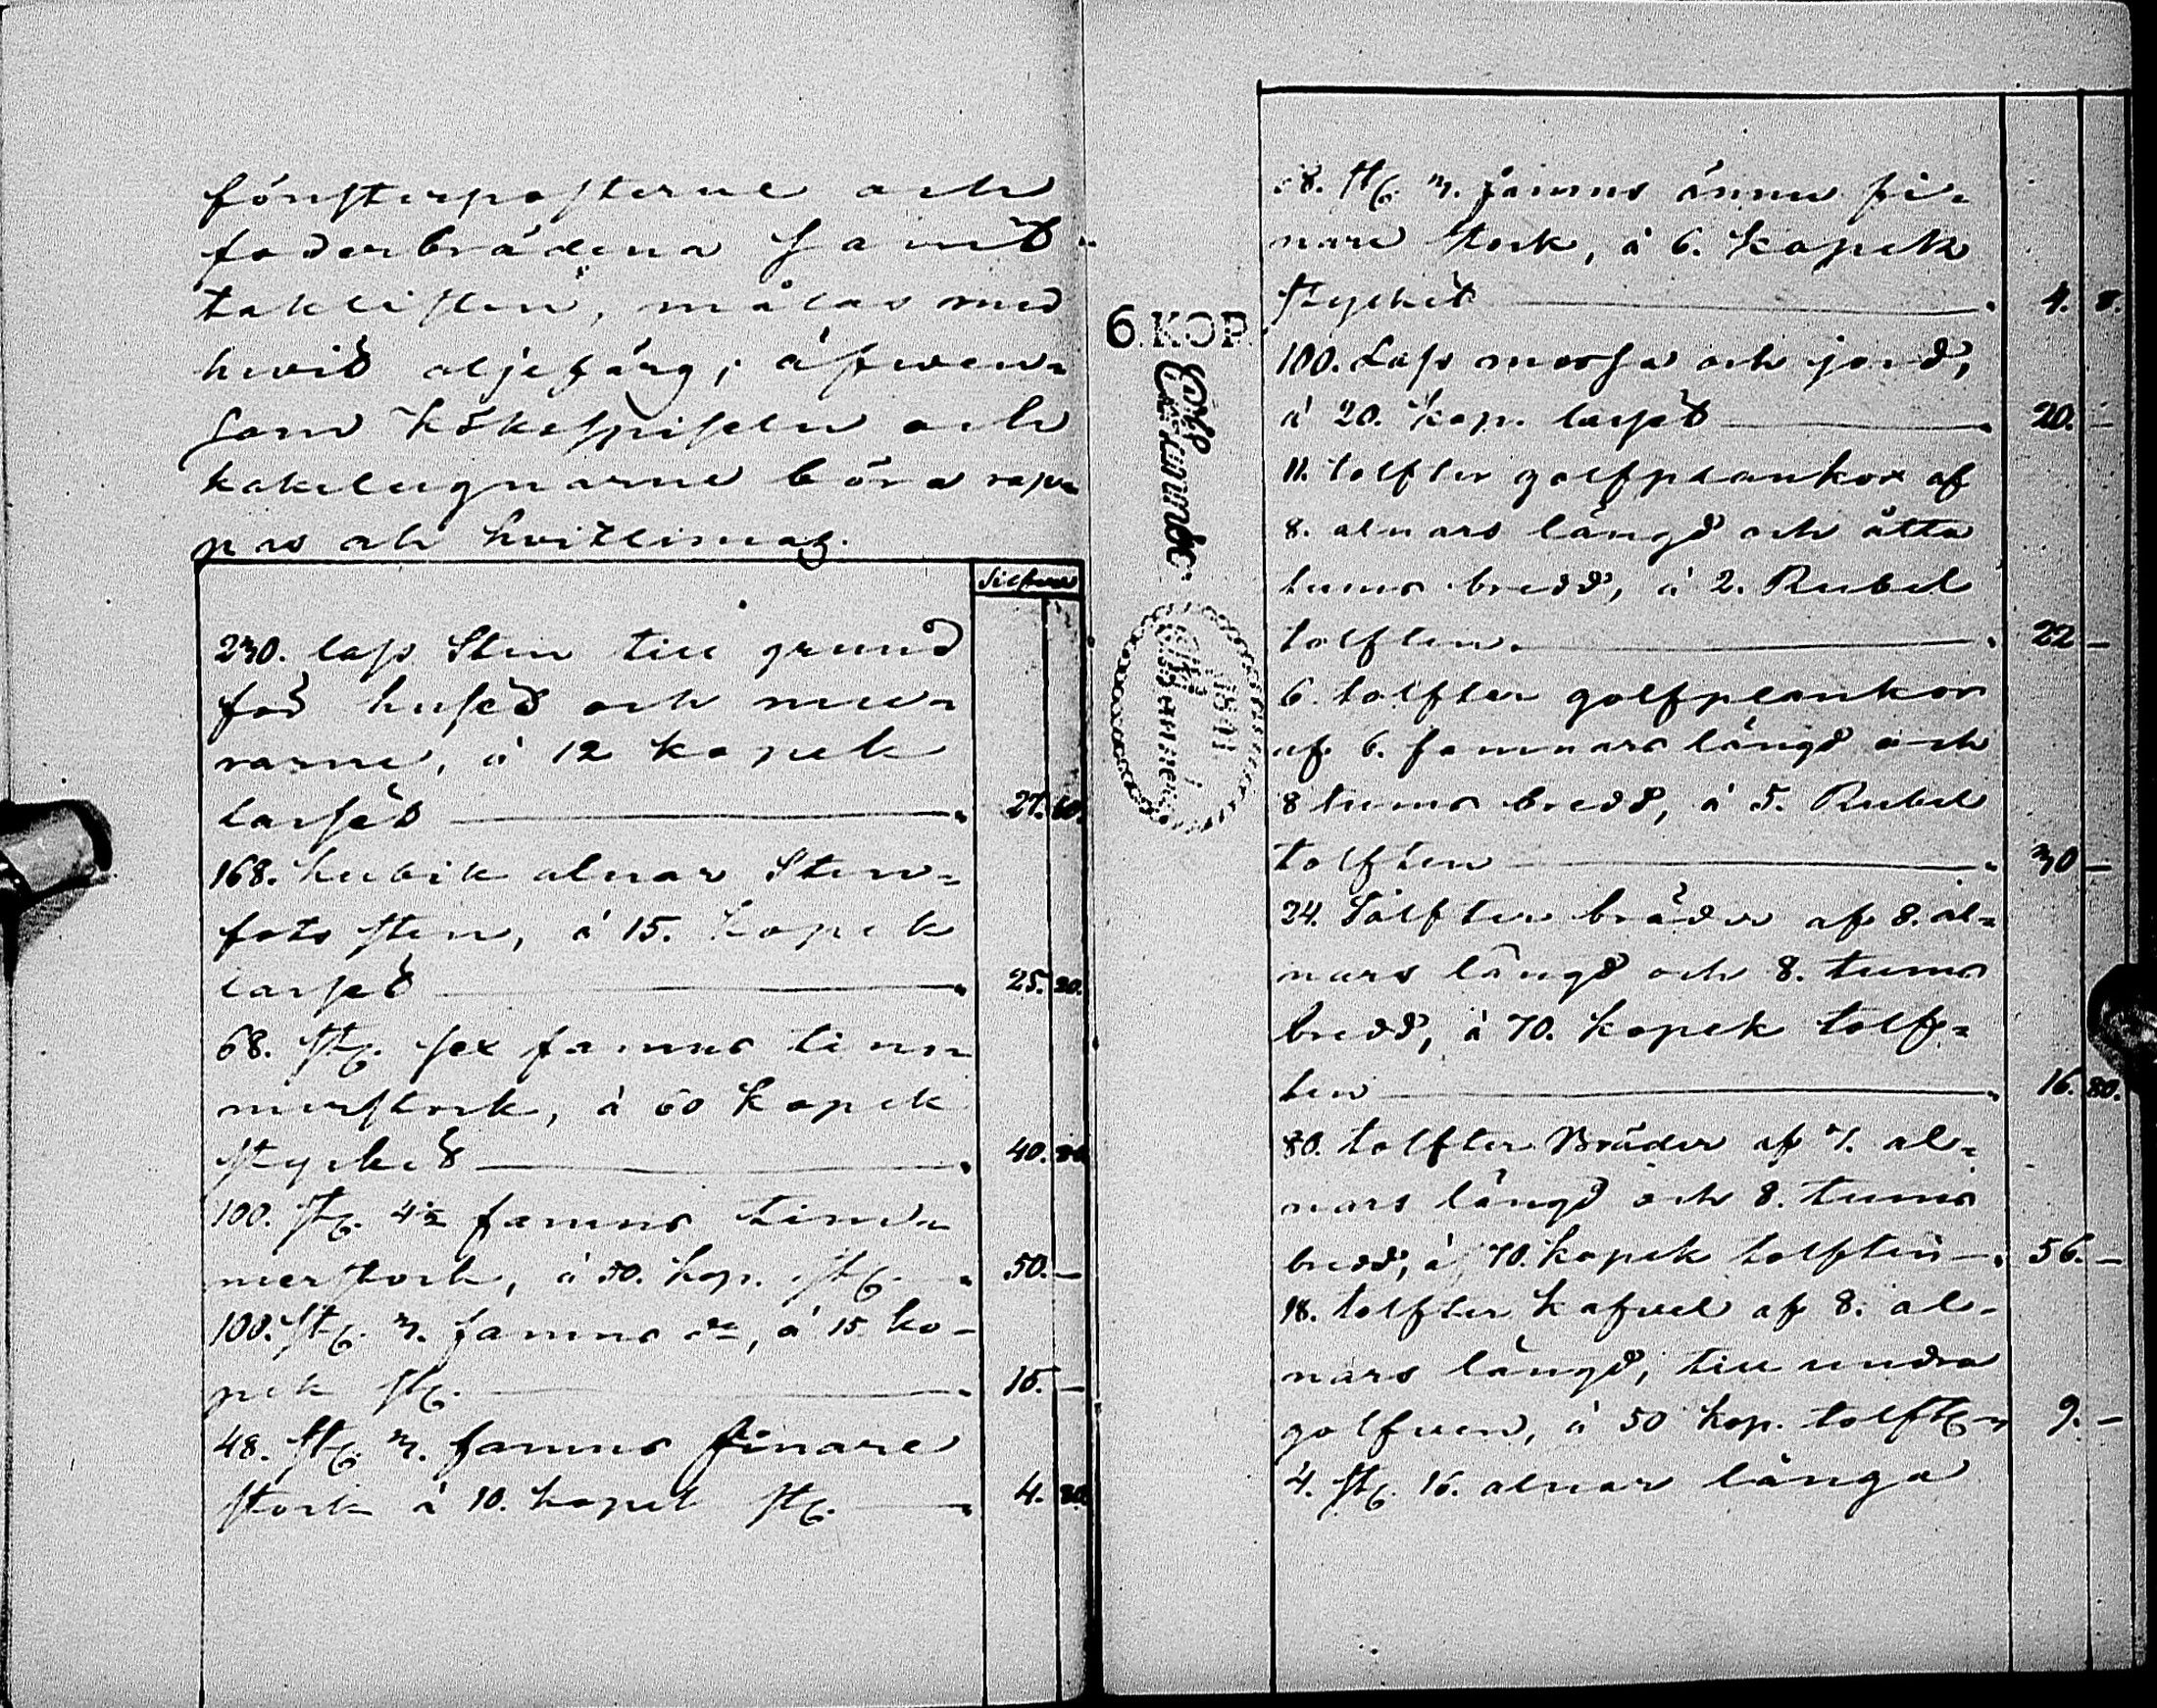 fönsterposterne och
foderbrädena samt
taklisten, målas med
hvit oljefärg; äfven-
som köksspiseln och
kakelugnarne böra rap-
pas och hvitlimas.
Silfver
230. lass Sten till grund
för huset och mu-
rarne, à 12 kopek
lasset 27. 60.
168. kubik alnar Sten-
fots sten, à 15. kopek
lasset 25. 20.
68. stÿ. sex famns tim-
merstock, à 60 kopek
stycket 40. 80.
100. st. 4½ famns tim-
merstock, à 50. kop. st. 50. –
100. st. 3. famns do, à 15 ko-
pek st. 15. –
48. st. 3. famns finare
stock à 10. kopek st. 4. 80.
6. KOP.
68. st. 3. famns ännu fi-
nare stock, à 6. kopek
stycket 4. 8.
100. Lass mossa och jord,
à 20. kop. lasset 20. –
11. tolfter golfplankor af
8. alnars längd och åtta
tums bredd, à 2. Rubel
tolften 22 –
6. tolfter golfplankor
af 6. famnars längd och
8 tums bredd, à 5. Rubel
tolften 30 –
24. Tolfter bräder af 8. al-
nars längd och 8. tums
bredd, à 70. kopek tolf-
ten 16. 80.
80. tolfter Bräder af 7. al-
nars längd och 8. tums
bredd, à 70. kopek tolften 56. –
18. tolfter kafvel af 8. al-
nars längd, till undra
golfven, à 50 kop. tolft. 9. –
4. st. 16. alnar långa